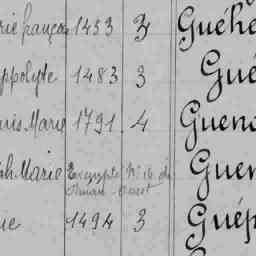 rie françois 1453 3 Guéhe
ppolyte 1483 3 Gué
uis Marie 1791 4 Gueno
ph Marie Exempté N° 16 di Guen
Ouest
ue 1494 3 Guép